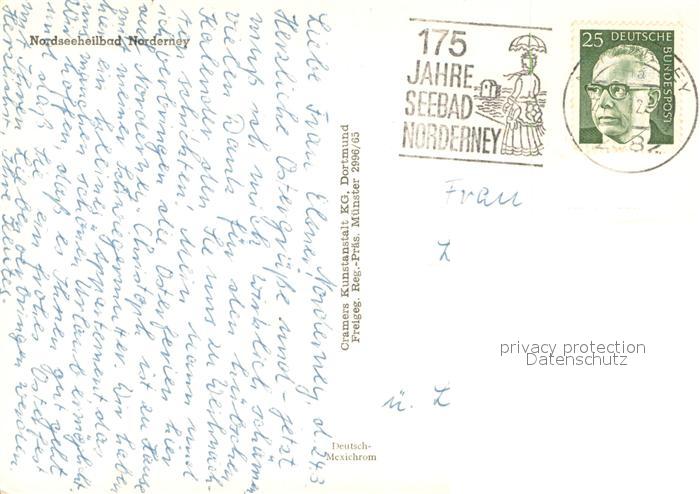 Nordseeheilbad Norderney
Norderney, d. 24.3
Liebe Frau Elsner,
Herzliche Ostergrüße und - jetzt
muß ich mich wirklich schämen
vielen Dank für den hübschen
Kalender den Sie uns zu Weihnach-
ten schickten. Mein Mann und
ich verbringen die Osterferien hier
auf Norderney. Christoph ist zu Hause
bei meiner Schwiegermutter. Wir haben
hier ein kleines Appartement, das
einen schönen Urlaub ermöglicht.
Wir hoffen daß es Ihnen gut geht
und daß Sie ein frohes Osterfest
mit Ihren Lieben verbringen werden
Herzlichst Ihre
Cramers Kunstanstalt KG, Dortmund
Freigeg. Reg.-Präs. Münster 2996/65
Deutsch-
Mexichrom
175
JAHRE
SEEBAD
NORDERNEY
25 DEUTSCHE
BUNDESPOST
Frau
Z
ü. Z
privacy protection
Datenschutz